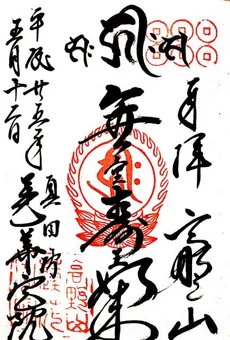 奉拝 高野山
無量壽如来
真田坊
蓮華定院
平成廿五年
五月十二日